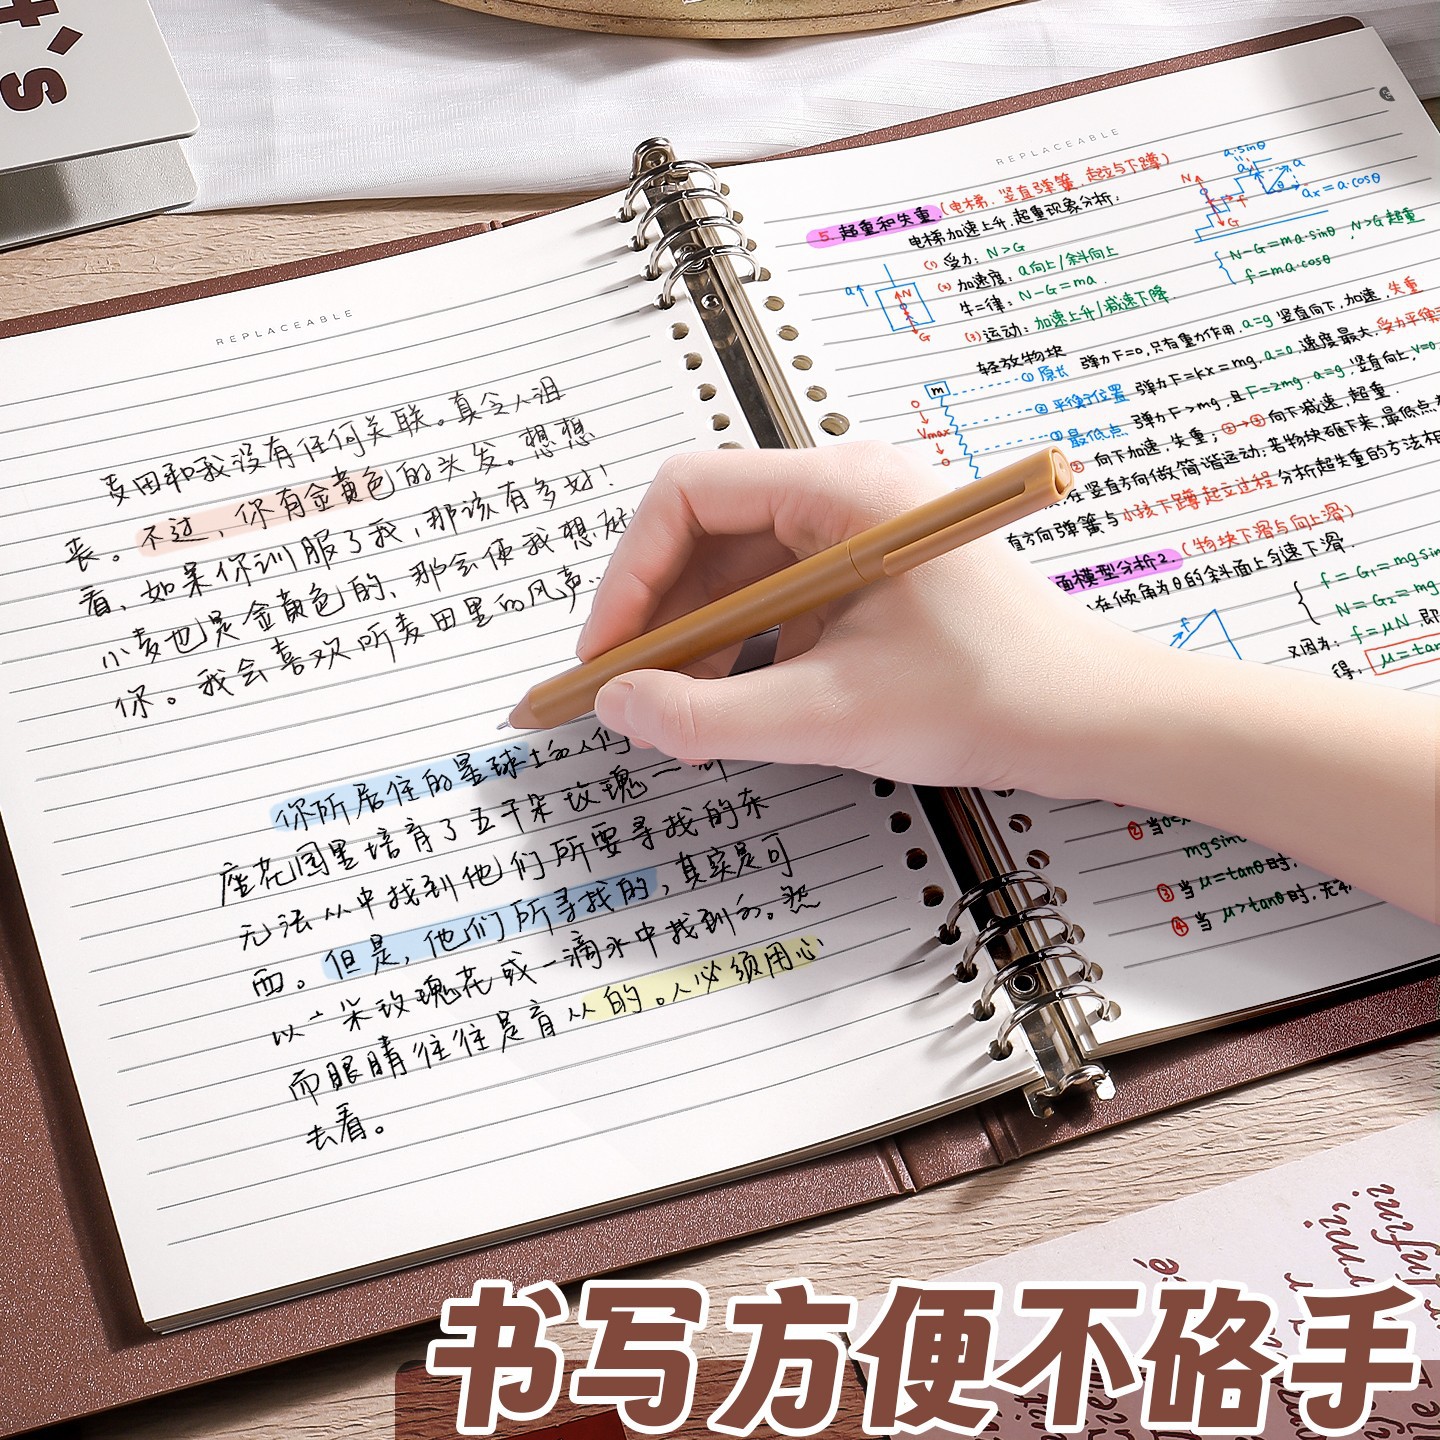 t's
REPLACEABLE
麦田和我没有任何关联。真令人沮
丧。不过，你有金黄色的头发。想想
看、如果你训服了我，那该有多好！
小麦也是金黄色的、那会使我想起
你。我会喜欢听麦田里的风声...
你所居住的星球上的人们
座花园里培育了五千朵玫瑰一
无法从中找到他们所要寻找的东
西。但是，他们所寻找的，其实是可
以一朵玫瑰花或一滴水中找到的。然
而眼睛往往是盲从的。人必须用心
去看。
REPLACEABLE
5. 超重和失重.(电梯、竖直弹簧、起立与下蹲)
电梯加速上升,超重现象分析:
(1) 受力: N>G
(2) 加速度: a向上/斜向上
牛二律: N-G=ma
(3) 运动: 加速上升/减速下降
a
N
G
N
G
f
a·sinθ
a
θ
ax=a·cosθ
N-G=ma·sinθ, N>G超重
f=ma·cosθ
轻放物块
m
Vmax
① 原长 弹力F=0,只有重力作用,a=g 竖直向下,加速,失重
② 平衡位置 弹力F=kx=mg,a=0,速度最大,受力平衡
③ 最低点 弹力F>mg,且F=2mg,a=g,竖直向上,V=0
② 向下加速,失重; ②→③向下减速,超重.
在竖直方向做简谐运动,若物块砸下来,最低点
直方向弹簧与小孩下蹲起立过程分析超失重的方法相
面模型分析2.(物块下滑与向上滑)
在倾角为θ的斜面上匀速下滑.
f
f=G₁=mg sin
N=G₂=mg
又因为: f=μN,即
得, μ=tan
② 当
mgsinθ
③ 当 μ=tanθ时,
④ 当 μ>tanθ时,无
书写方便不硌手